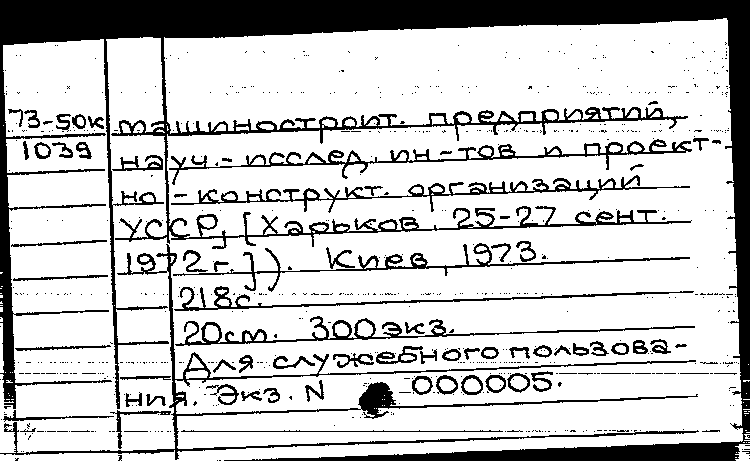 73-50к машиностроит. предприятий,
1039 науч.-исслед. ин-тов и проект-
но-конструкт. организаций
УССР, [Харьков, 25-27 сент.
1972 г.]). Киев, 1973.
218с.
20см. 300экз.
Для служебного пользова-
ния. Экз. N 000005.